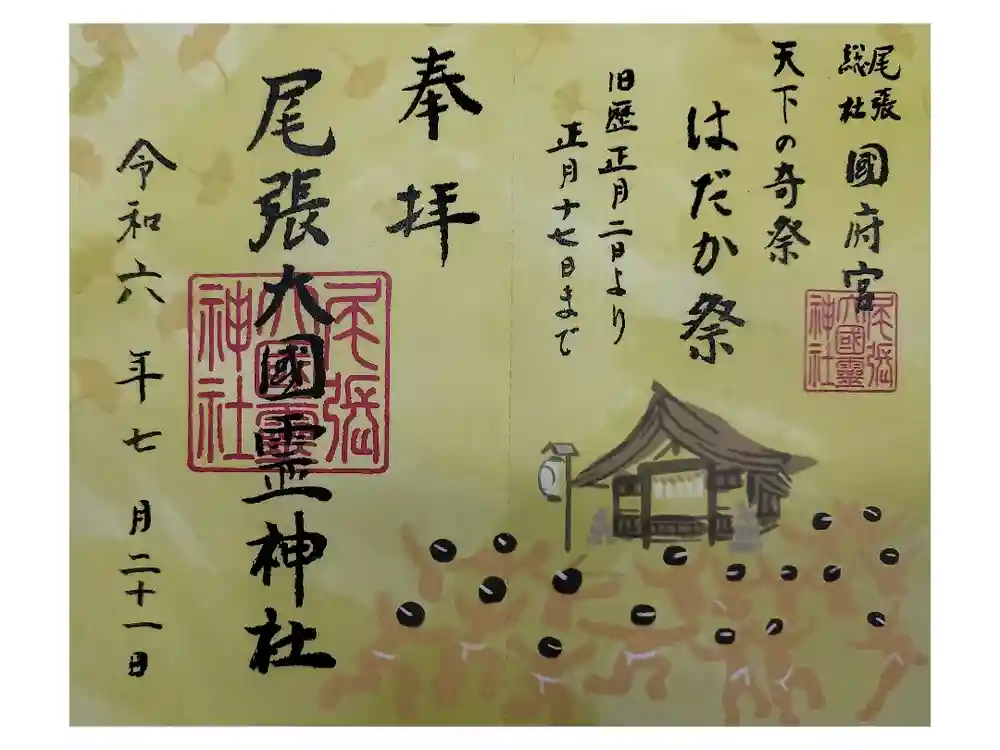 尾張
総社
國府宮
天下の奇祭
はだか祭
旧歴正月二日より
正月十七日まで
尾張
大國霊
神社
奉拝
尾張大國霊神社
尾張
大國霊
神社
令和六年七月二十一日